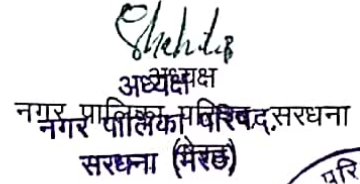 अध्यक्ष
अध्यक्ष
नगर पालिका परिषद सरधना
नगर पालिका परिषद,
सरधना (मेरठ)
परि